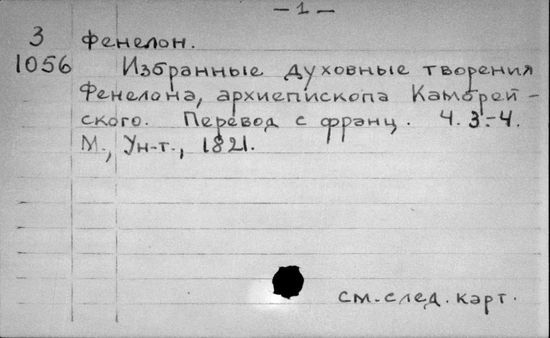 — 1 —
3 Фенелон.
1056 Избранные духовные творения
Фенелона, архиепископа Камбрей-
ского. Перевод с франц. Ч. 3.-4.
М., Ун-т., 1821.
см. след. карт.